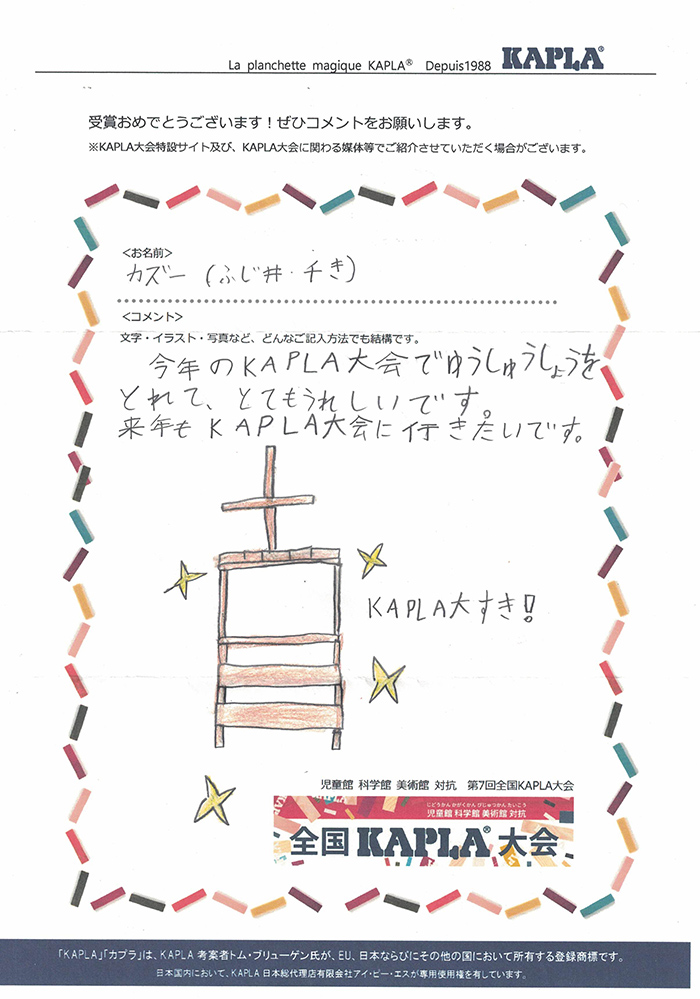 La planchette magique KAPLA® Depuis1988 KAPLA®
受賞おめでとうございます！ぜひコメントをお願いします。
※KAPLA大会特設サイト及び、KAPLA大会に関わる媒体等でご紹介させていただく場合がございます。
<お名前>
カズー（ふじ井・千き）
<コメント>
文字・イラスト・写真など、どんなご記入方法でも結構です。
今年のKAPLA大会でゆうしゅうしょうを
とれて、とてもうれしいです。
来年もKAPLA大会に行きたいです。
KAPLA大すき!
児童館 科学館 美術館 対抗 第7回全国KAPLA大会
じどうかん かがくかん びじゅつかん たいこう
児童館 科学館 美術館 対抗
全国KAPLA®大会
「KAPLA」「カプラ」は、KAPLA 考案者トム・ブリューゲン氏が、EU、日本ならびにその他の国において所有する登録商標です。
日本国内において、KAPLA 日本総代理店有限会社アイ・ピー・エスが専用使用権を有しています。